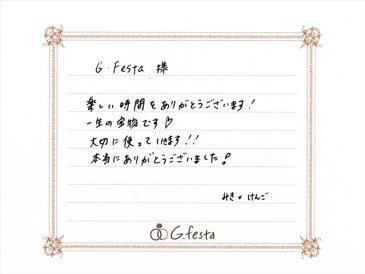 G.Festa 様
楽しい時間をありがとうございます！
一生の宝物です♡
大切に使っていきます！！
本当にありがとうございました！
みき♥けんご
G.festa